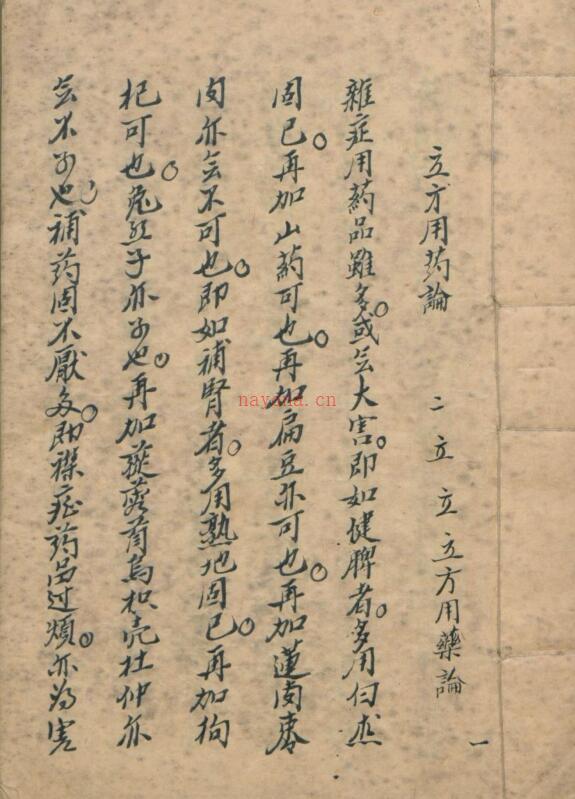 立方用药論 二 立 立 立方用藥論 一
雜症用藥品雖多。或无大害。即如健脾者。多用白朮
固已。再加山藥可也。再加扁豆亦可也。再加蓮肉麥
肉亦无不可也。即如補腎者。多用熟地固已。再加枸
杞可也。兔丝子亦可也。再加蓯蓉首烏枳壳杜仲亦
无不可也。補药固不厭多。即襍症药品过煩。亦为害
nayona.cn